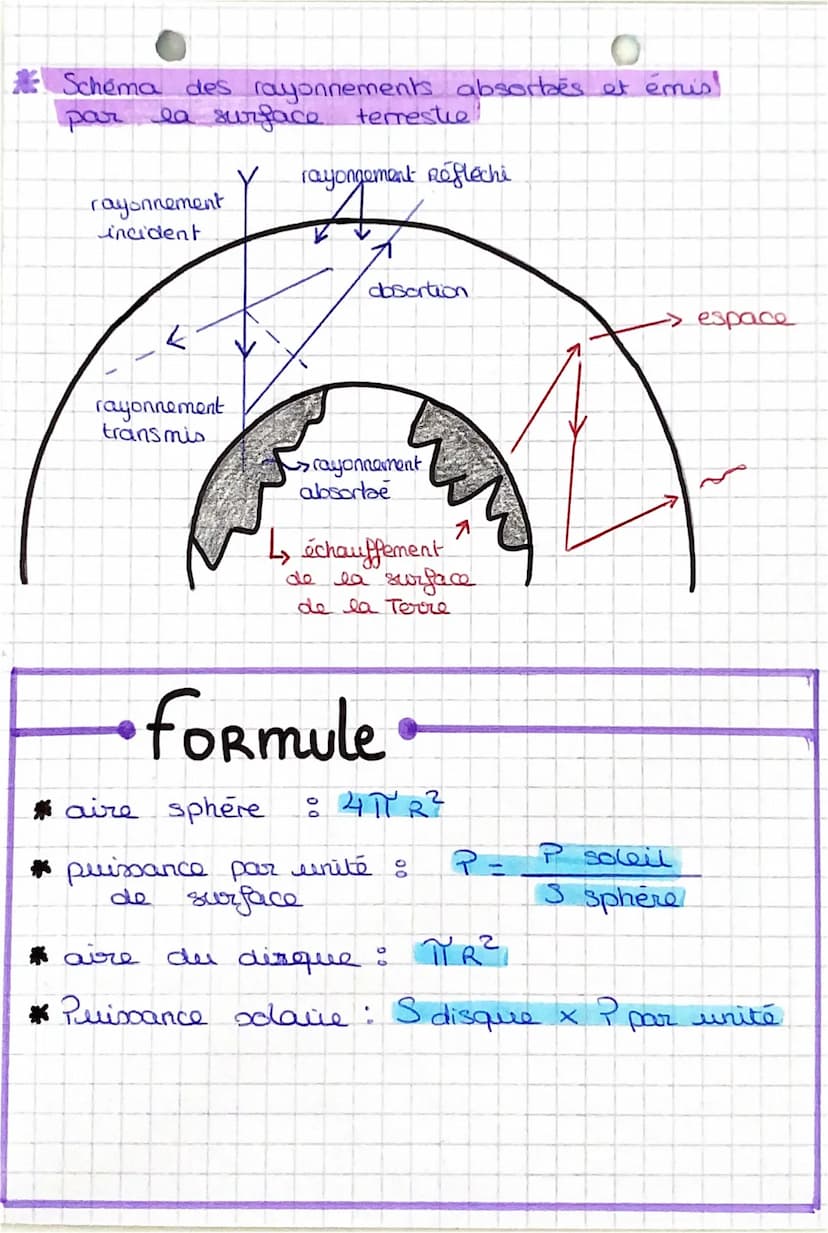 * Schéma des rayonnements absorbés et émis
par la surface terrestre
rayonnement réfléchi
rayonnement
incident
absortion
espace
rayonnement
transmis
rayonnement
absorbé
échauffement
de la surface
de la Terre
formule
* aire sphère : 4πR²
* puissance par unité : P = P soleil
de surface S sphère
* aire du disque : πR²
* Puissance solaire : S disque x P par unité